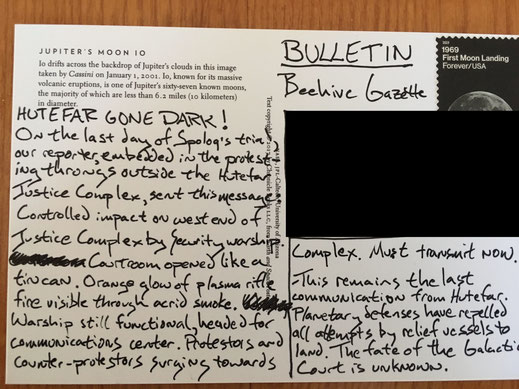 JUPITER'S MOON IO
Io drifts across the backdrop of Jupiter's clouds in this image
taken by Cassini on January 1, 2001. Io, known for its massive
volcanic eruptions, is one of Jupiter's sixty-seven known moons,
the majority of which are less than 6.2 miles (10 kilometers)
in diameter.
HUTEFAR GONE DARK!
On the last day of Spolog's trial
our reporter, embedded in the protest-
ing throngs outside the Hutefar
Justice Complex, sent this message
Controlled impact on west end of
Justice Complex by Security warship.
Courtroom opened like a
tin can. Orange glow of plasma rifle
fire visible through acrid smoke.
Warship still functional, headed for
communications center. Protestors and
counter-protestors surging towards
BULLETIN
Beehive Gazette
1969
First Moon Landing
Forever/USA
Complex. Must transmit now.
This remains the last
communication from Hutefar.
Planetary defenses have repelled
all attempts by relief vessels to
land. The fate of the Galactic
Court is unknown.